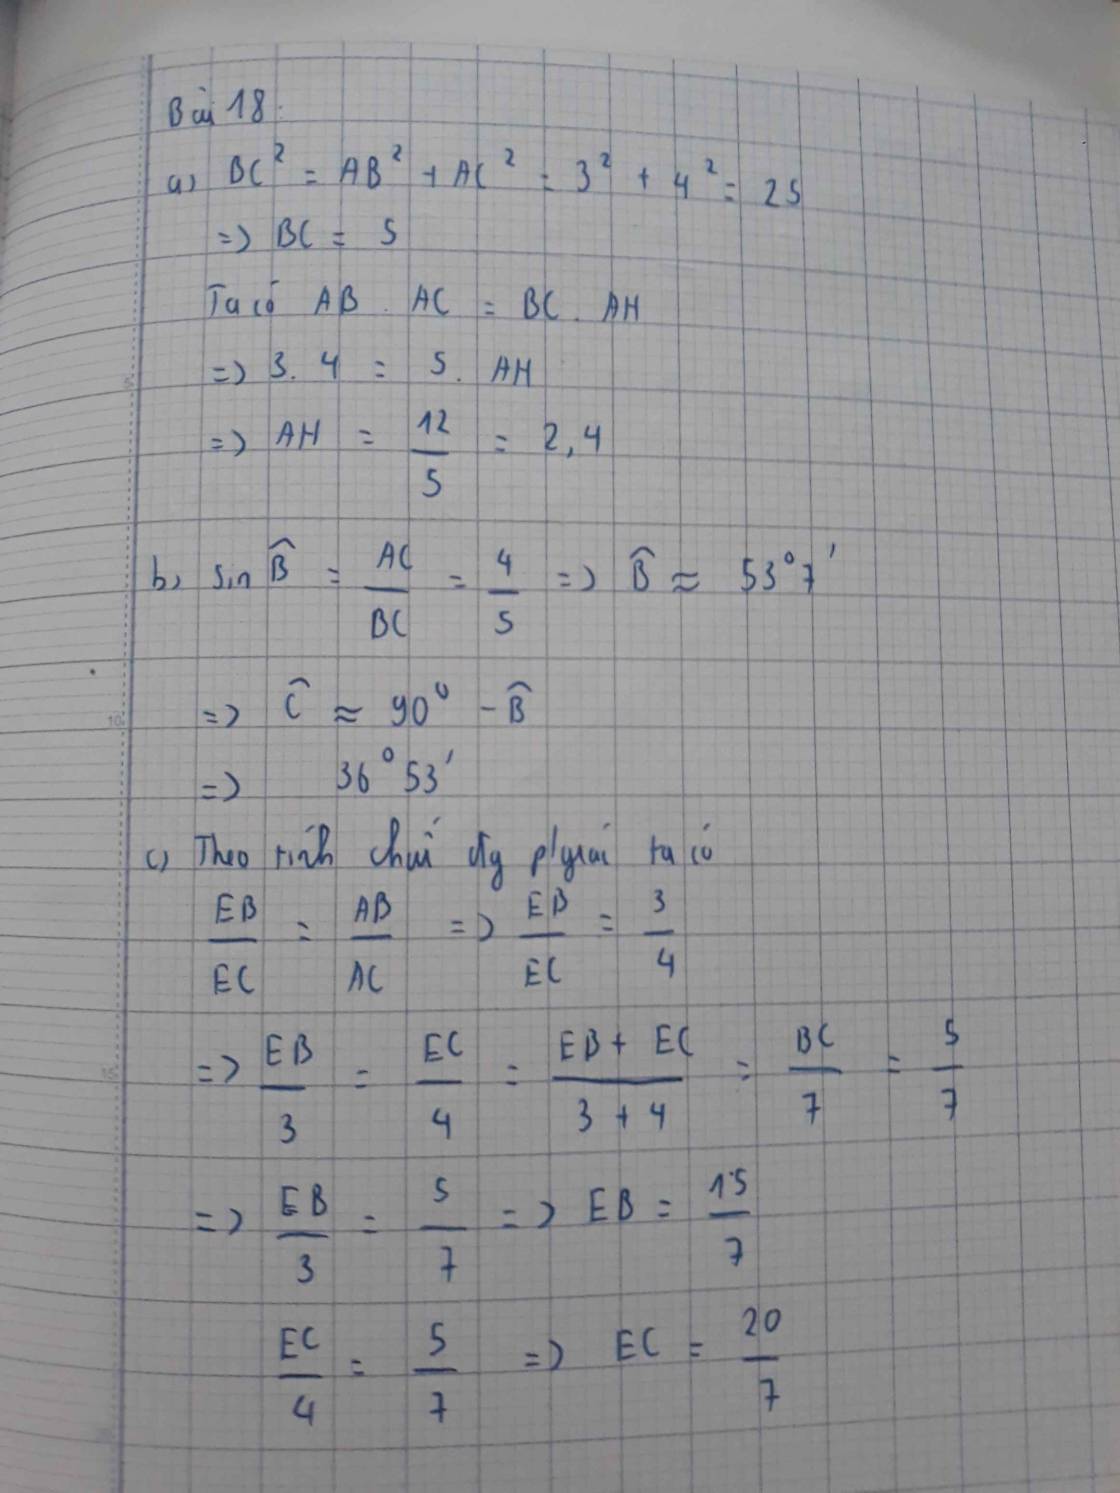 Bài 18:
a) BC² = AB² + AC² = 3² + 4² = 25
=> BC = 5
Ta có AB . AC = BC . AH
=> 3. 4 = 5. AH
=> AH = 12/5 = 2,4
b) sin B̂ = AC/BC = 4/5 => B̂ ≈ 53°7'
=> Ĉ ≈ 90° - B̂
=> 36°53'
c) Theo tính chất đg p/giác ta có
EB/EC = AB/AC => EB/EC = 3/4
=> EB/3 = EC/4 = EB + EC/3 + 4 = BC/7 = 5/7
=> EB/3 = 5/7 => EB = 15/7
EC/4 = 5/7 => EC = 20/7